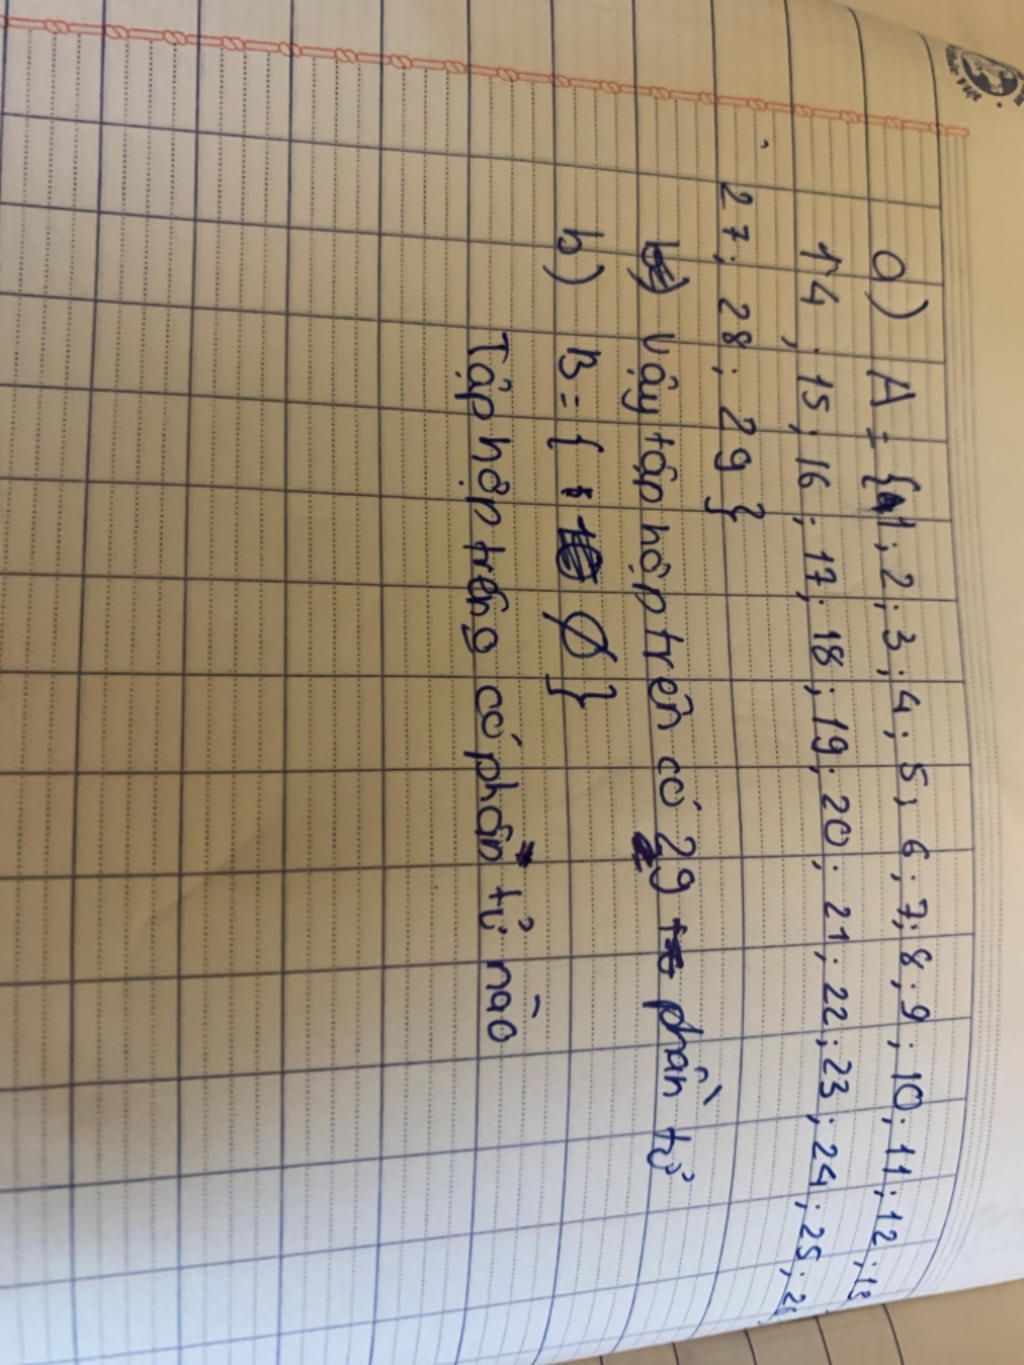 a) A = {1; 2; 3; 4; 5; 6; 7; 8; 9; 10; 11; 12; 13
14; 15; 16; 17; 18; 19; 20; 21; 22; 23; 24; 25; 26
27; 28; 29}
Vậy tập hợp trên có 29 phần tử
b) B = { ∅ }
Tập hợp trên có phần tử nào